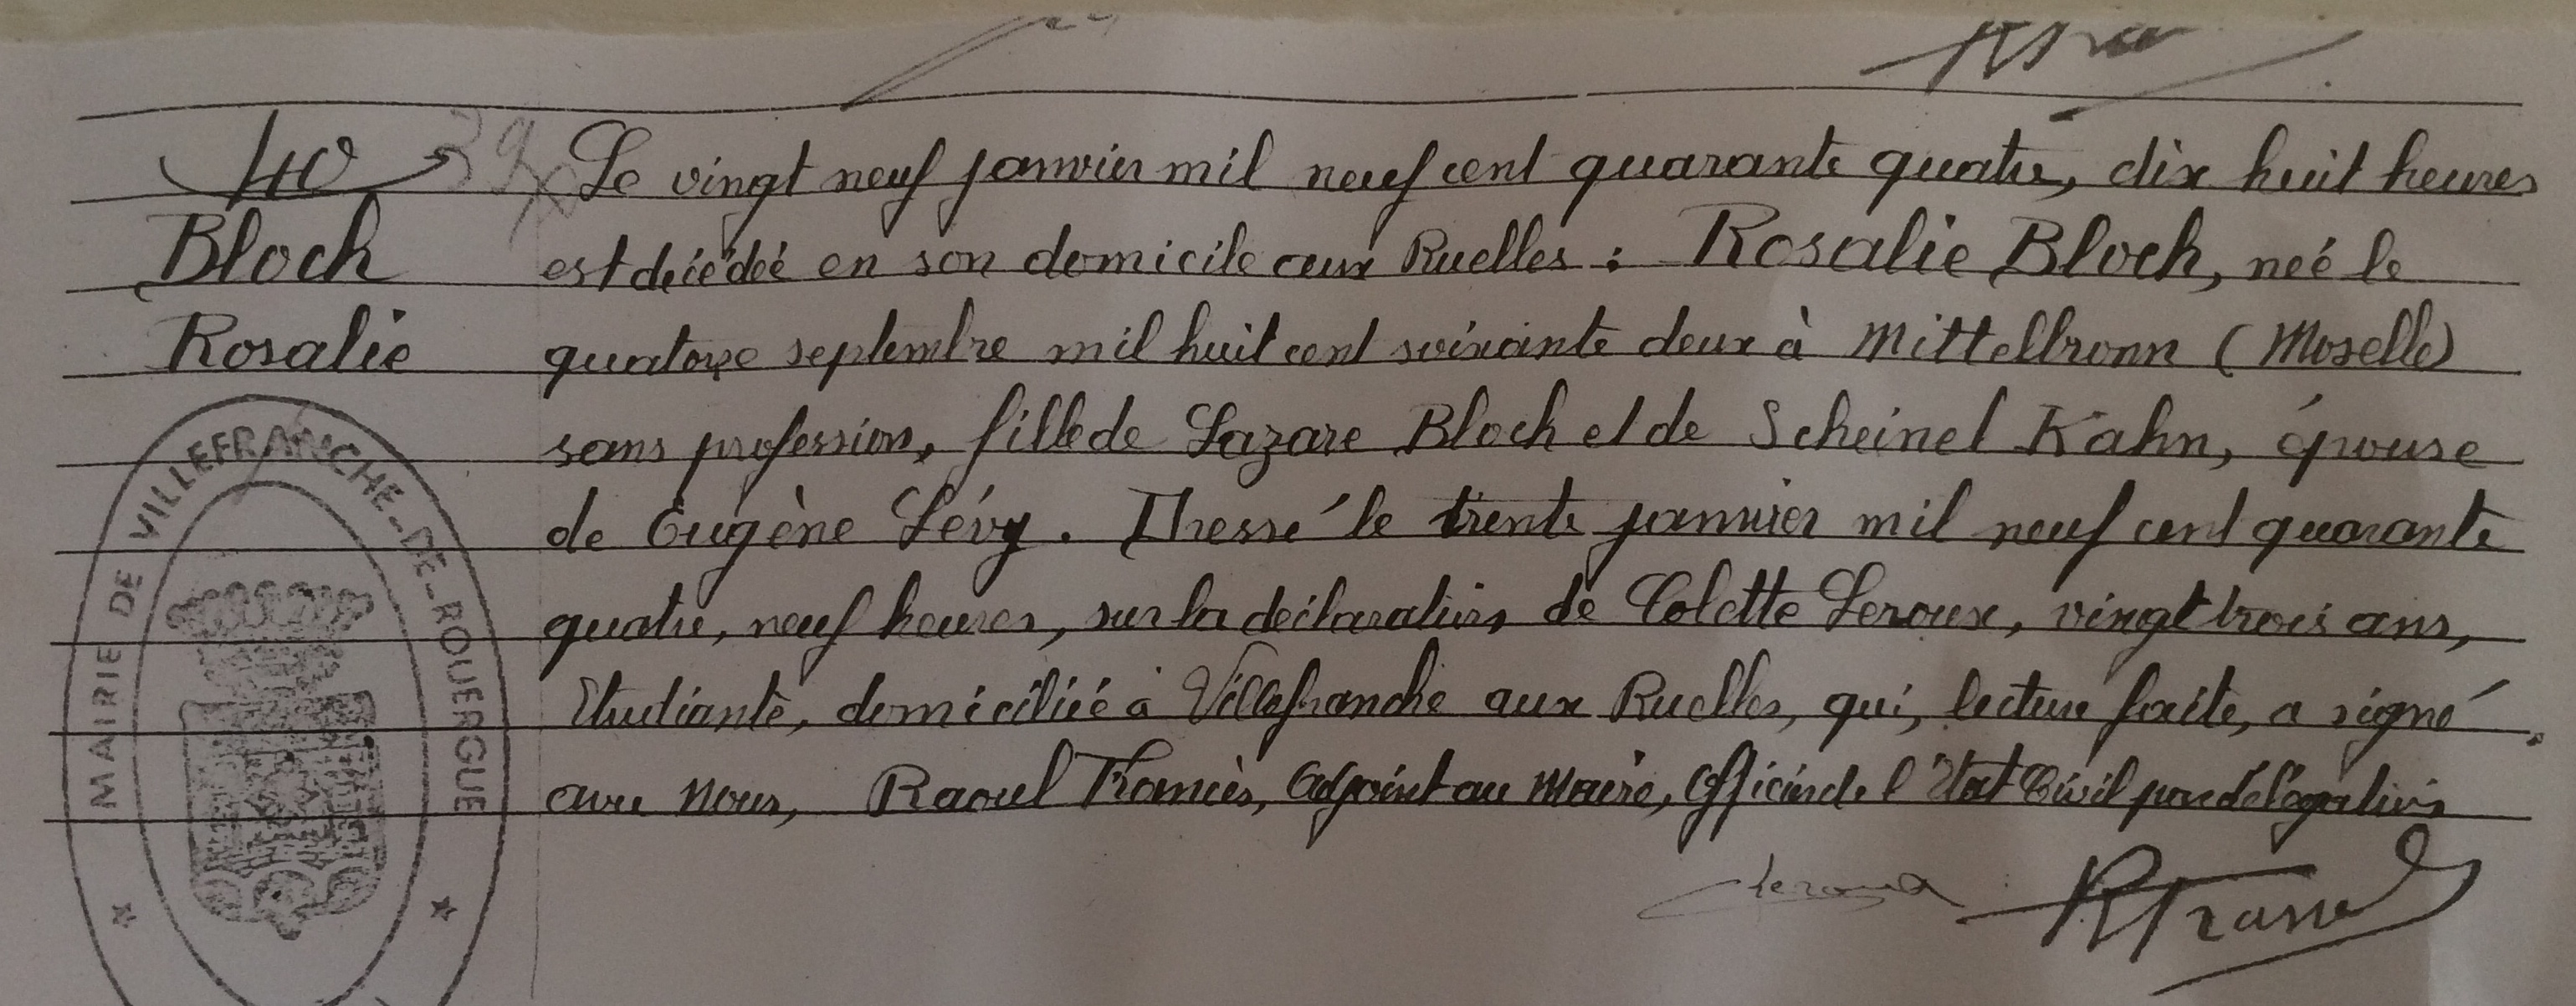 40 39
Le vingt neuf janvier mil neuf cent quarante quatre, dix huit heures
Bloch
est decédéé en son domicile aux Ruelles : Rosalie Bloch, neé le
Rosalie
quatorze septembre mil huit cent soixante deux à Mittelbronn (Moselle)
sans profession, fille de Lazare Bloch et de Scheinel Kahn, épouse
de Eugène Lévy. Dressé le trente janvier mil neuf cent quarante
quatre, neuf heures, sur la déclaration de Colette Leroux, vingt trois ans,
Etudiante, domiciliéé à Villefranche aux Ruelles, qui, lecture faite, a signé
avec Nous, Raoul adjoint au Maire, Officier de l'Etat Civil par délégation
MAIRIE DE VILLEFRANCHE-DE-ROUERGUE
Leroux